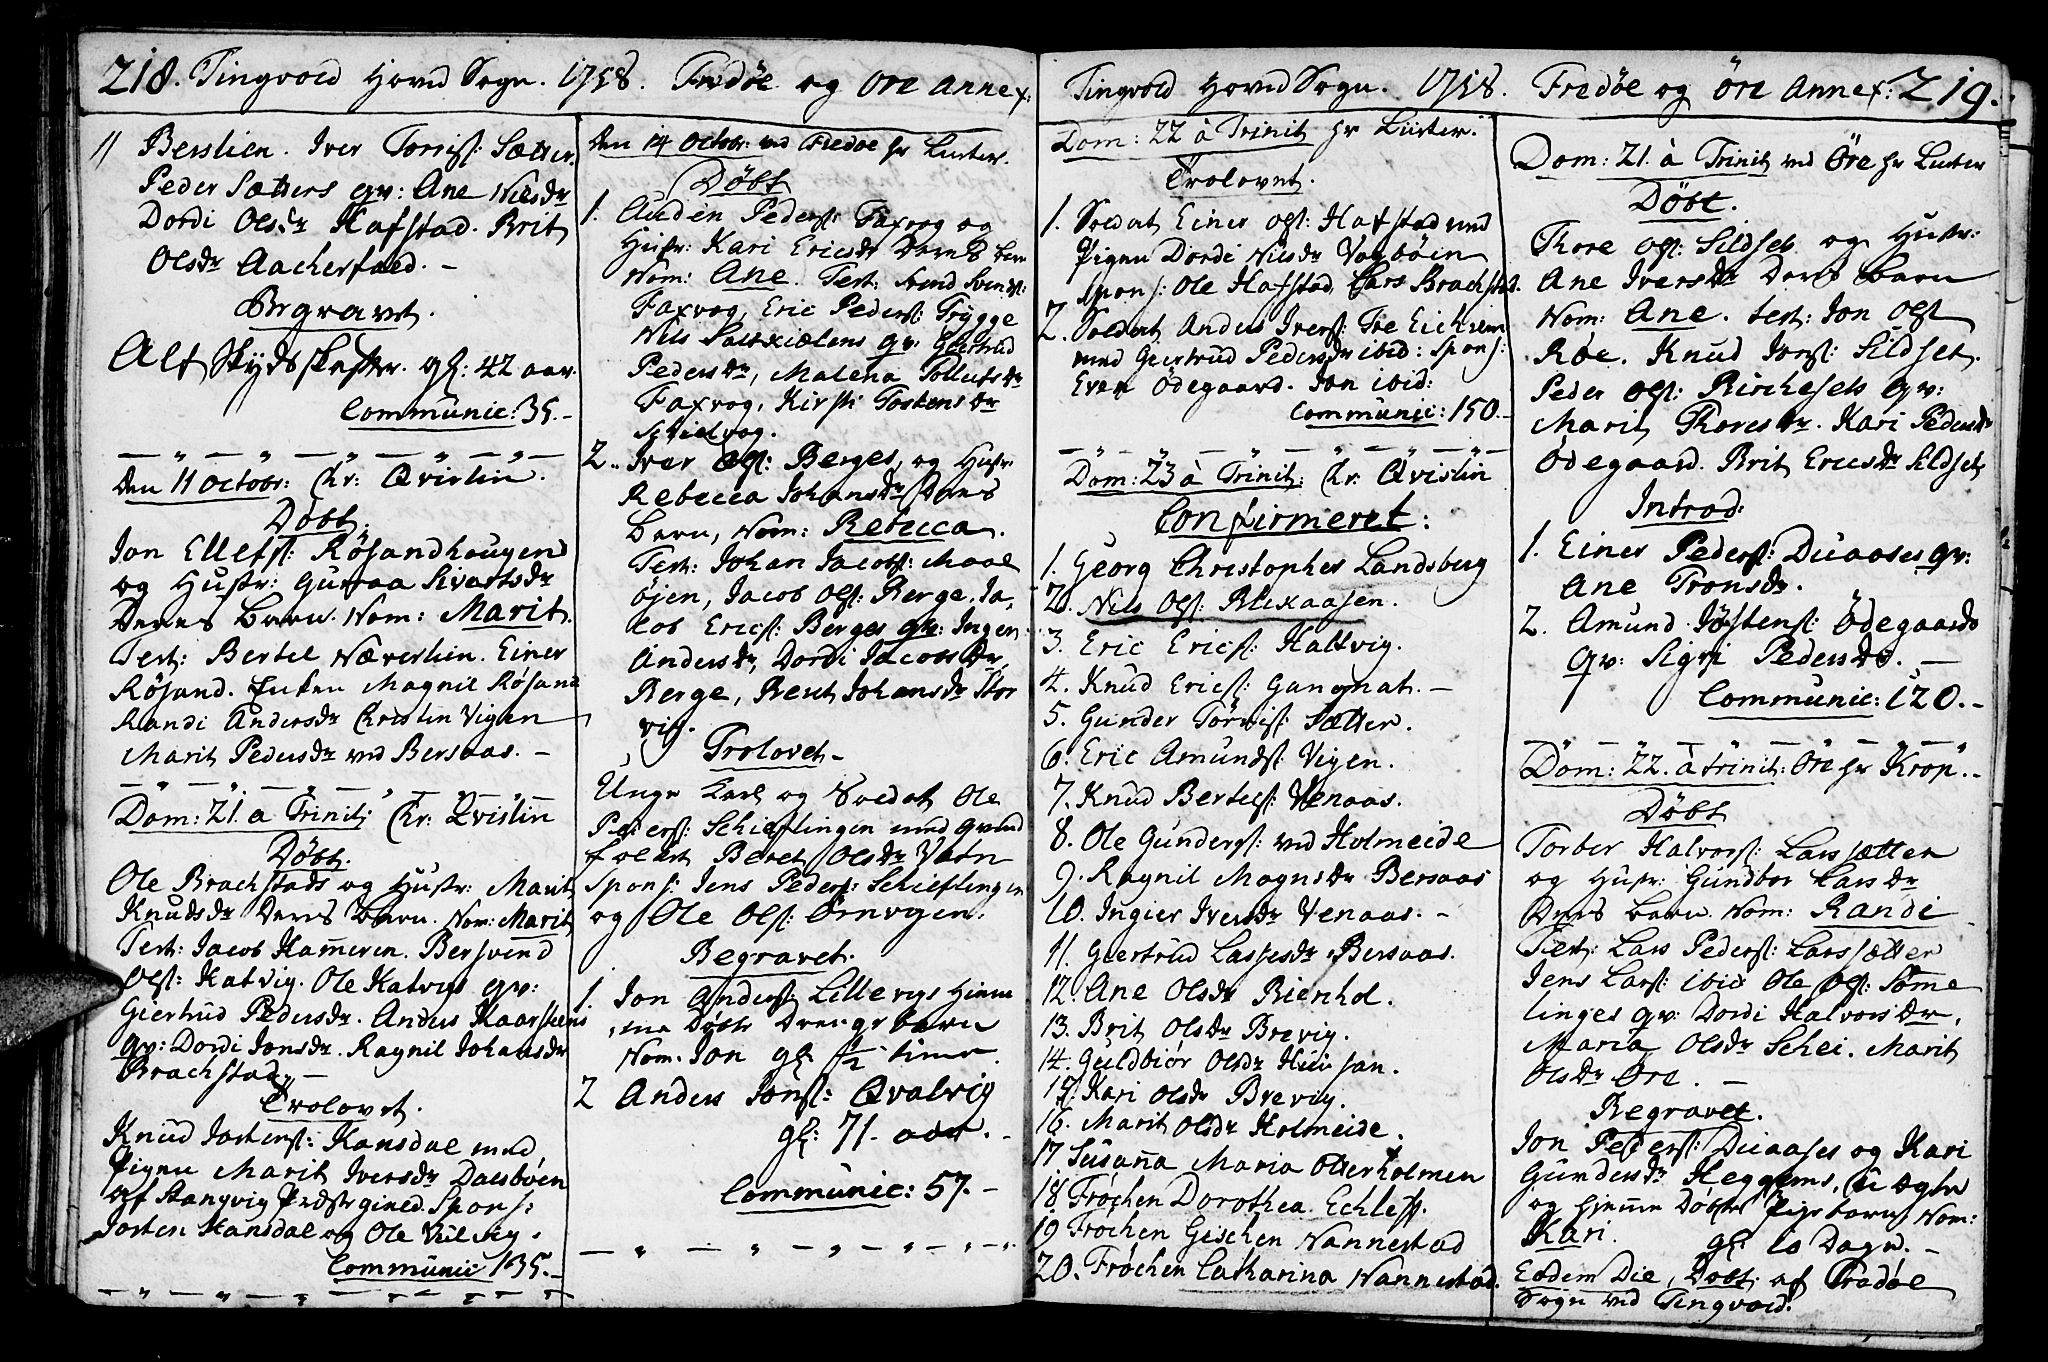 218. Tingvold Hovd Sogn. 1758. Fredøe og Øre Annex:
11 Berslien. Iver Torrisß: Sætter.
Peder Sætters qv: Ane Nilsdr
Dordi Olsdr Hafstad. Brit
Olsdr Aacherfald. -
Begravet.
Alf Skydskaffer. gl: 42 aar.
Communic: 35. -
Den 11 Octobr: Chr: Qvislin.
Døbt.
Jon Ellefs: Røsandhougen
og Hustr: Guraa Sivartsdr
Deres barn. Nom: Marit.
Test: Bertel Næverlien. Einer
Røsand. Enken Magnil Røsand
Randi Andersdr Christin Vigen
Marit Pedersdr ved Bersaas. -
Dom: 21. a Trinit: Chr: Qvislin
Døbt.
Ole Brachstads og Hustr: Marit
Knudsdr Deres barn. Nom: Marit
Test: Jacob Hammeren. Bersvend
Ols: Hatvig. Ole Hatvigs qv:
Giertrud Pedersdr. Anders Kaarsteens
qv: Dordi Jonsdr. Ragnil Johansdr
Brachstad. -
Trolovet.
Knud Jostens: Hansdal med
Pigen Marit Iversdr Dalsbøen
af Stangvig Præstegield. Spons:
Josten Hansdal og Ole
Communic 135. -
Den 14 Octobr: ved Fredøe hr Luster.
Døbt
1. Auden Peders: Faxvog og
Hustr: Kari Ericsdr Deres barn
Nom: Ane. Test: Svend Svends:
Faxvog, Eric Peders: Trygge
Nils Saltkielens qv. Giertrud
Pedersdr, Malena Tollufsdr
Faxvog, Kirsti Tostensdr
Schielvog.
2. Iver Ols: Berges, og Hustr
Rebecca Johansdr Deres
barn, Nom: Rebecca.
Test: Johan Jacobs: Maal
øjen, Jacob Ols: Berge. Ja,
cob Erics: Berges qv: Inger
Andersdr, Dordi Jacobsdr
Berge, Beret Johansdr Stor
vig.
Trolovet -
Unge Karl og Soldat Ole
Peders: Schieflingen med qvind
folket Beret Olsdr Vatn
Spons: Jens Peders: Schieflingen
og Ole Ols: Ørnvgen.
Begravet.
1. Jon Anders: Lillevigs Hiem
me Døbte Drenge barn
Nom. Jon gl: 1/2 time.
2 Anders Jons: Qvalvig
gl: 71. aar. -
Communic: 57. -
Tingvold Hovd Sogn. 1758. Fredøe og Øre Annex: 219.
Dom: 22 à Trinit hr Luster.
Trolovet.
1. Soldat Einer Ols: Hafstad med
Pigen Dordi Nilsdr Vagbøen
Spons: Ole Hafstad Lars Brachstad.
2. Soldat Anders Ivers: Tre Eichrem
med Giertrud Pedersdr ibid: Spons:
Even Ødegaard. Jon ibid:
Communic: 150. -
Dom: 23 à Trinit: Chr: Qvislin
Confirmeret:
1. Georg Christopher Landsberg
2. Nils Ols: Blixaasen.
3. Eric Erics: Hattvig.
4. Knud Erics: Gangnat. -
5. Gunder Tørris: Sætter.
6. Eric Amunds: Vigen.
7. Knud Bertels: Venaas.
8. Ole Gunders: ved Holmeide
9. Ragnil Magnsdr Bersaas
10. Ingier Iversdr Venaas. -
11. Giertrud Lassesdr Bersaas.
12. Ane Olsdr Bienhol.
13. Brit Olsdr Brevig.
14. Guldbiør Olsdr
15. Kari Olsdr Brevig.
16. Marit Olsdr Holmeide.
17 Susanna Maria Otterholmen
18. Frøchen Dorothea Echleff.
19 Frøchen Gischen Nannestad
20. Frøchen Catharina Nannestad.
Dom: 21. à Trinit ved Øre hr Luster
Døbt.
Thore Ols: Sildsets og Hustr:
Ane Iversdr Deres barn
Nom: Ane. test: Jon Ols:
Røe. Knud Jons: Sildset.
Peder Ols: Birchesets qv:
Marit Thoresdr. Kari Pedersdr
Ødegaard. Brit Ericsdr Sildset
Introd:
1. Einer Peders: Duaases qv:
Ane Tronsdr.
2. Amund Jøstens: Ødegaards
qv: Sigri Pedersdr. -
Communic: 120. -
Dom: 22. à trinit: Øre hr Krop. -
Døbt
Torber Halvors: Larssætter
og Hustr: Gundbor Larsdr
Deres barn Nom: Randi
Test: Lars Peders: Larssætter
Jens Lars: ibid Ole Ols: Søme
linges qv: Dordi Halvorsdr,
Maria Olsdr Schei. Marit
Olsdr Øre. -
Begravet.
Jon Peders: Duaases og Kari
Gundersdr Heggems, u ægte
og hjemme Døbte Pige barn Nom:
Kari. gl: 10 Dage. -
Eodem Die, Døbt af Fredøe
Sogn ved Tingvold: